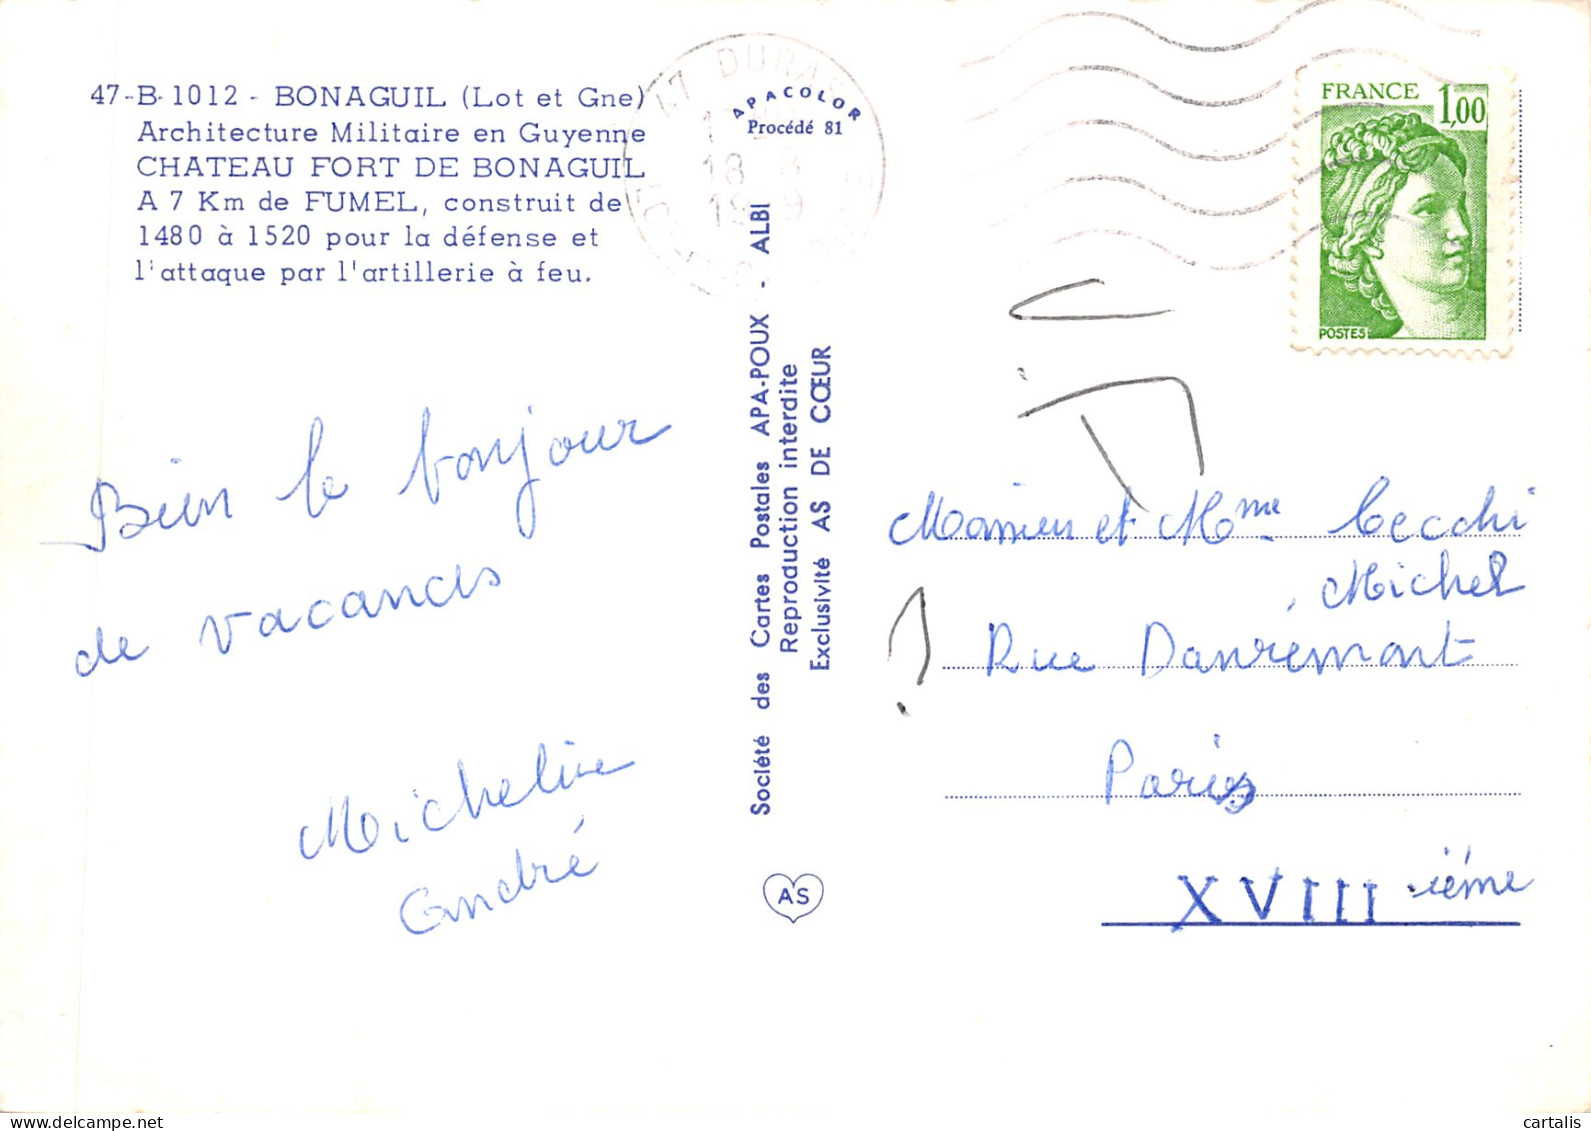 47-B-1012 - BONAGUIL (Lot et Gne)
Architecture Militaire en Guyenne
CHATEAU FORT DE BONAGUIL
A 7 Km de FUMEL, construit de
1480 à 1520 pour la défense et
l'attaque par l'artillerie à feu.
Bien le bonjour
de vacances
Micheline
André
47 DURAS
18 8
APACOLOR
Procédé 81
Société des Cartes Postales APA-POUX - ALBI
Reproduction interdite
Exclusivité AS DE CŒUR
AS
FRANCE 1,00
POSTES
et Mme Cecchi
Michel
Rue Danrémont
Paris
XVIII ième
cartalis
delcampe.net